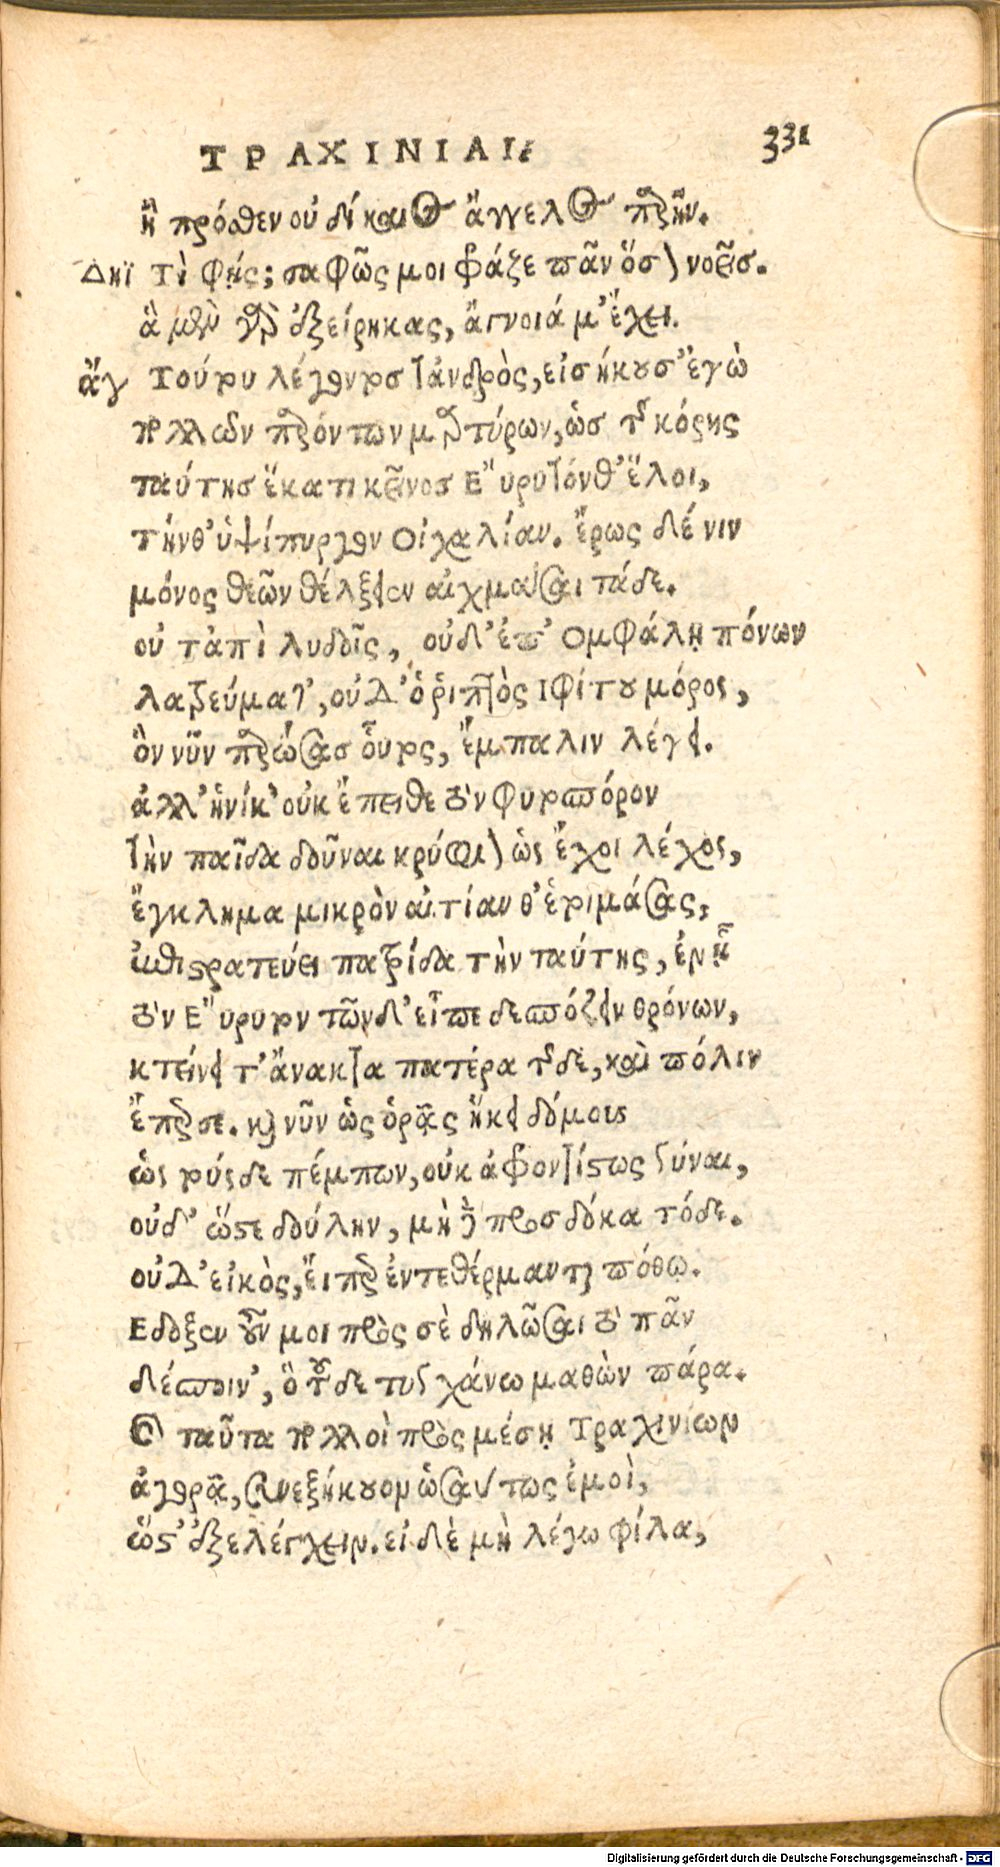 ΤΡΑΧΙΝΙΑΙ. 331
ἢ πρόσθεν οὐ δίκαιος ἄγγελος παρῆν.
Δηϊ Τὶ φῄς; σαφῶς μοι φράζε πᾶν ὅσον νοεῖσ.
ἃ μὲν γὰρ ἐξείρηκας, ἄγνοιά μ' ἔχει.
ἄγ Τούτου λέγοντοσ τἀνδρὸς, εἰσήκουσ' ἐγὼ
πολλῶν παρόντων μαρτύρων, ὡσ τῆς κόρης
ταύτησ ἕκατι κεῖνοσ Εὔρυτόν θ' ἕλοι,
τήνθ' ὑψίπυργον Οἰχαλίαν. ἔρως δέ νιν
μόνος θεῶν θέλξειεν αἰχμάσαι τάδε.
οὐ τἀπὶ λυδοῖς, οὐδ' ἐπ' Ομφάλῃ πόνων
λατρεύματ', οὐδ' ὁ ῥιπτὸς Ιφίτου μόρος,
ὃν νῦν παρώσασ οὗτος, ἔμπαλιν λέγει.
ἀλλ' ἡνίκ' οὐκ ἔπειθε τὸν φυτοσπόρον
τὴν παῖδα δοῦναι κρύφιον ὡς ἔχοι λέχος,
ἔγκλημα μικρὸν αἰτίαν θ' ἑτοιμάσας,
ἐπιστρατεύει πατρίδα τὴν ταύτης, ἐν ᾗ
τὸν Εὔρυτον τῶνδ' εἶπε δεσπόζειν θρόνων,
κτείνει τ' ἄνακτα πατέρα τῆσδε, καὶ πόλιν
ἔπερσε. καὶ νῦν ὡς ὁρᾷς ἥκει δόμους
ὡς τούςδε πέμπων, οὐκ ἀφροντίστως γύναι,
οὐδ' ὥστε δούλην, μὴ προσδόκα τόδε.
οὐδ' εἰκὸς, εἴπερ ἐντεθέρμανται πόθῳ.
Εδοξεν οὖν μοι πρὸς σὲ δηλῶσαι τὸ πᾶν
δέσποιν', ὃ τοῦδε τυγχάνω μαθὼν πάρα.
Καὶ ταῦτα πολλοὶ πρὸς μέσῃ Τραχινίων
ἀγορᾷ, συνεξήκουον ὡσαύτως ἐμοὶ,
ὥστ' ἐξελέγχειν. εἰ δὲ μὴ λέγω φίλα,
Digitalisierung gefördert durch die Deutsche Forschungsgemeinschaft - DFG